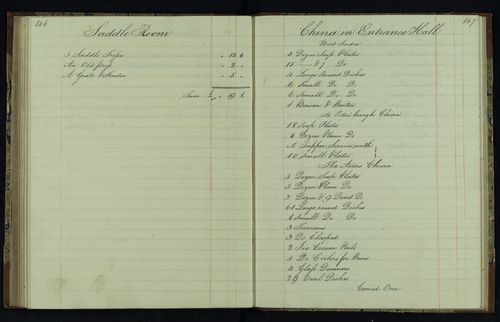 146
Saddle Room
3 Saddle Trees " 12 6
An Old " 2 "
A Grate & Fender " 5 "
Sum £ " 19 6
147
China in Entrance Hall
East India
3 Dozen Soup Plates
15 & 7 Do
4 Large Round Dishes
6 Small Do Do
6 Small Do Do
1 Bason &
St Petersburgh China
18 Soup Plates
6 Dozen Plain Do
A Supper Service with
10 Small Plates
The Arms China
4 Dozen Soup Plates
5 Dozen Plain Do
3 Dozen & 9 Do
61 Large round Dishes
6 Small Do Do
3 Tureens
3 Do
2 Ice Cream Pails
4 Do Coolers for Wine
4 Glass
29 Oval Dishes
Carried Over